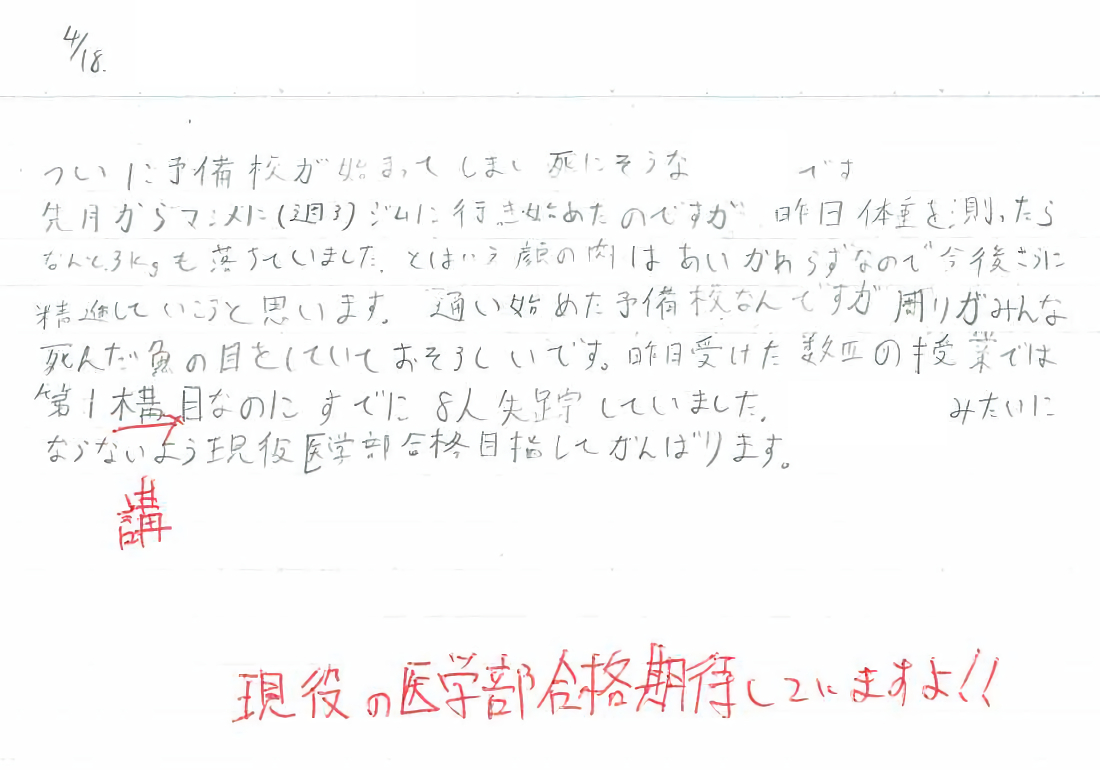 4/18.
ついに予備校が始まってしまい死にそうな です
先月からマジメに(週3)ジムに行き始めたのですが 昨日体重を測ったら
なんと3kgも落ちていました。とはいう顔の肉はあいかわらずなので今後さらに
精進していこうと思います。通い始めた予備校なんですが周りがみんな
死んだ魚の目をしていておそろしいです。昨日受けた数Ⅲの授業では
第1構目なのにすでに8人失踪していました。 みたいに
ならないよう現役医学部合格目指してがんばります。
講
現役の医学部合格期待していますよ!!